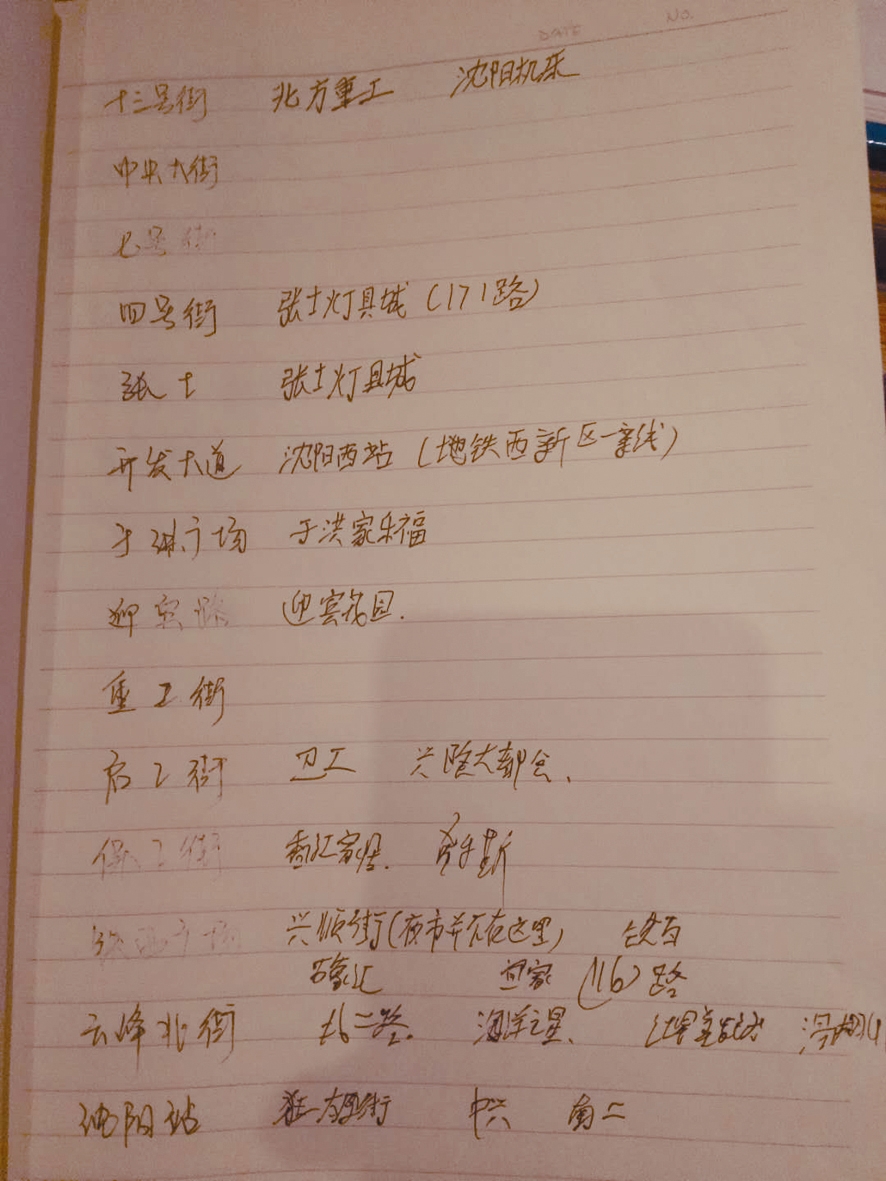 DATE NO.
十三号街 北方重工 沈阳机床
中央大街
七号街
四号街 张士灯具城(171路)
张士 张士灯具城
开发大道 沈阳西站(地铁西新区一号线)
于洪广场 于洪家乐福
迎宾路 迎宾花园.
重工街
启工街 卫工 兴隆大都会、
保工街 香江家居.
铁西广场 兴顺街(夜市并不在这里) 铁百
万象汇 回家(116)路
云峰北街 北二路. 海洋之星、
沈阳站 中兴 南二